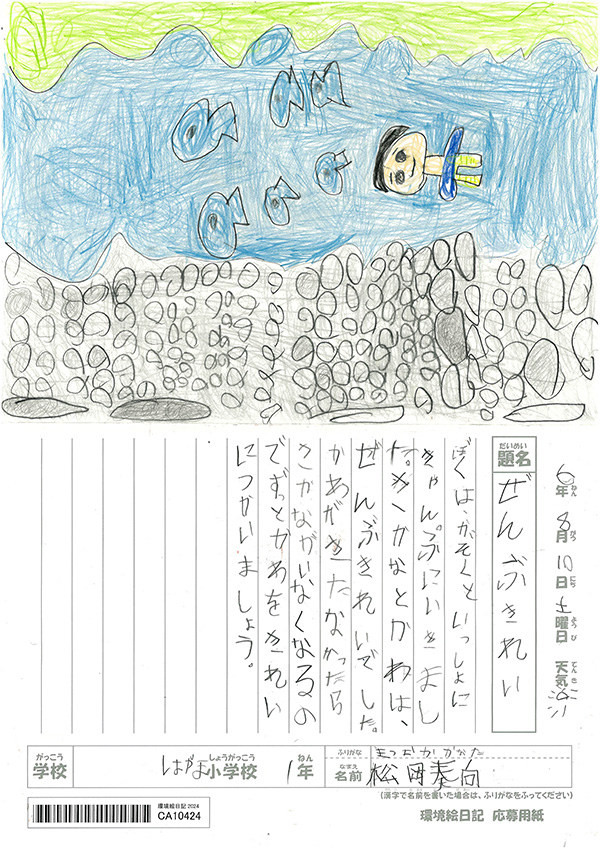 6年 8月 10日 土曜日 天気
ねん がつ にち ようび てんき
だいめい
題名 ぜんぶきれい
ぼくは、かぞくといっしょに
きゃんぷにいきまし
た。さかなとかわは、
ぜんぶきれいでした。
かわがきたなかったら
さかながいなくなるの
でずっとかわをきれい
につかいましょう。
がっこう しょうがっこう ねん
学校 小学校 1年
ふりがな まつおかかなた
なまえ
名前 松岡奏向
(漢字で名前を書いた場合は、ふりがなをふってください)
環境絵日記 2024
CA10424
環境絵日記 応募用紙